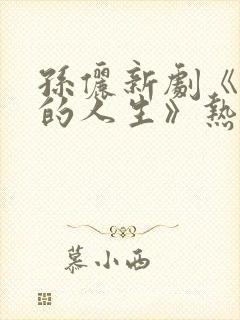 孫儷新劇《
的人生》熱
慕小西